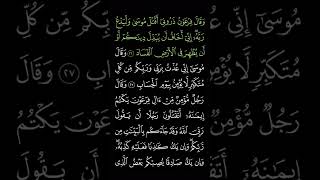 وَقَالَ فِرْعَوْنُ ذَرُونِيٓ أَقْتُلْ مُوسَىٰ وَلْيَدْعُ
رَبَّهُۥٓ إِنِّيٓ أَخَافُ أَن يُبَدِّلَ دِينَكُمْ أَوْ
أَن يُظْهِرَ فِي ٱلْأَرْضِ ٱلْفَسَادَ ٢٦ وَقَالَ
مُوسَىٰٓ إِنِّي عُذْتُ بِرَبِّي وَرَبِّكُم مِّن كُلِّ
مُتَكَبِّرٍ لَّا يُؤْمِنُ بِيَوْمِ ٱلْحِسَابِ ٢٧ وَقَالَ
رَجُلٌ مُّؤْمِنٌ مِّنْ ءَالِ فِرْعَوْنَ يَكْتُمُ
إِيمَٰنَهُۥٓ أَتَقْتُلُونَ رَجُلًا أَن يَقُولَ
رَبِّيَ ٱللَّهُ وَقَدْ جَآءَكُم بِٱلْبَيِّنَٰتِ مِن
رَّبِّكُمْ وَإِن يَكُ كَٰذِبًا فَعَلَيْهِ كَذِبُهُۥ
وَإِن يَكُ صَادِقًا يُصِبْكُم بَعْضُ ٱلَّذِي